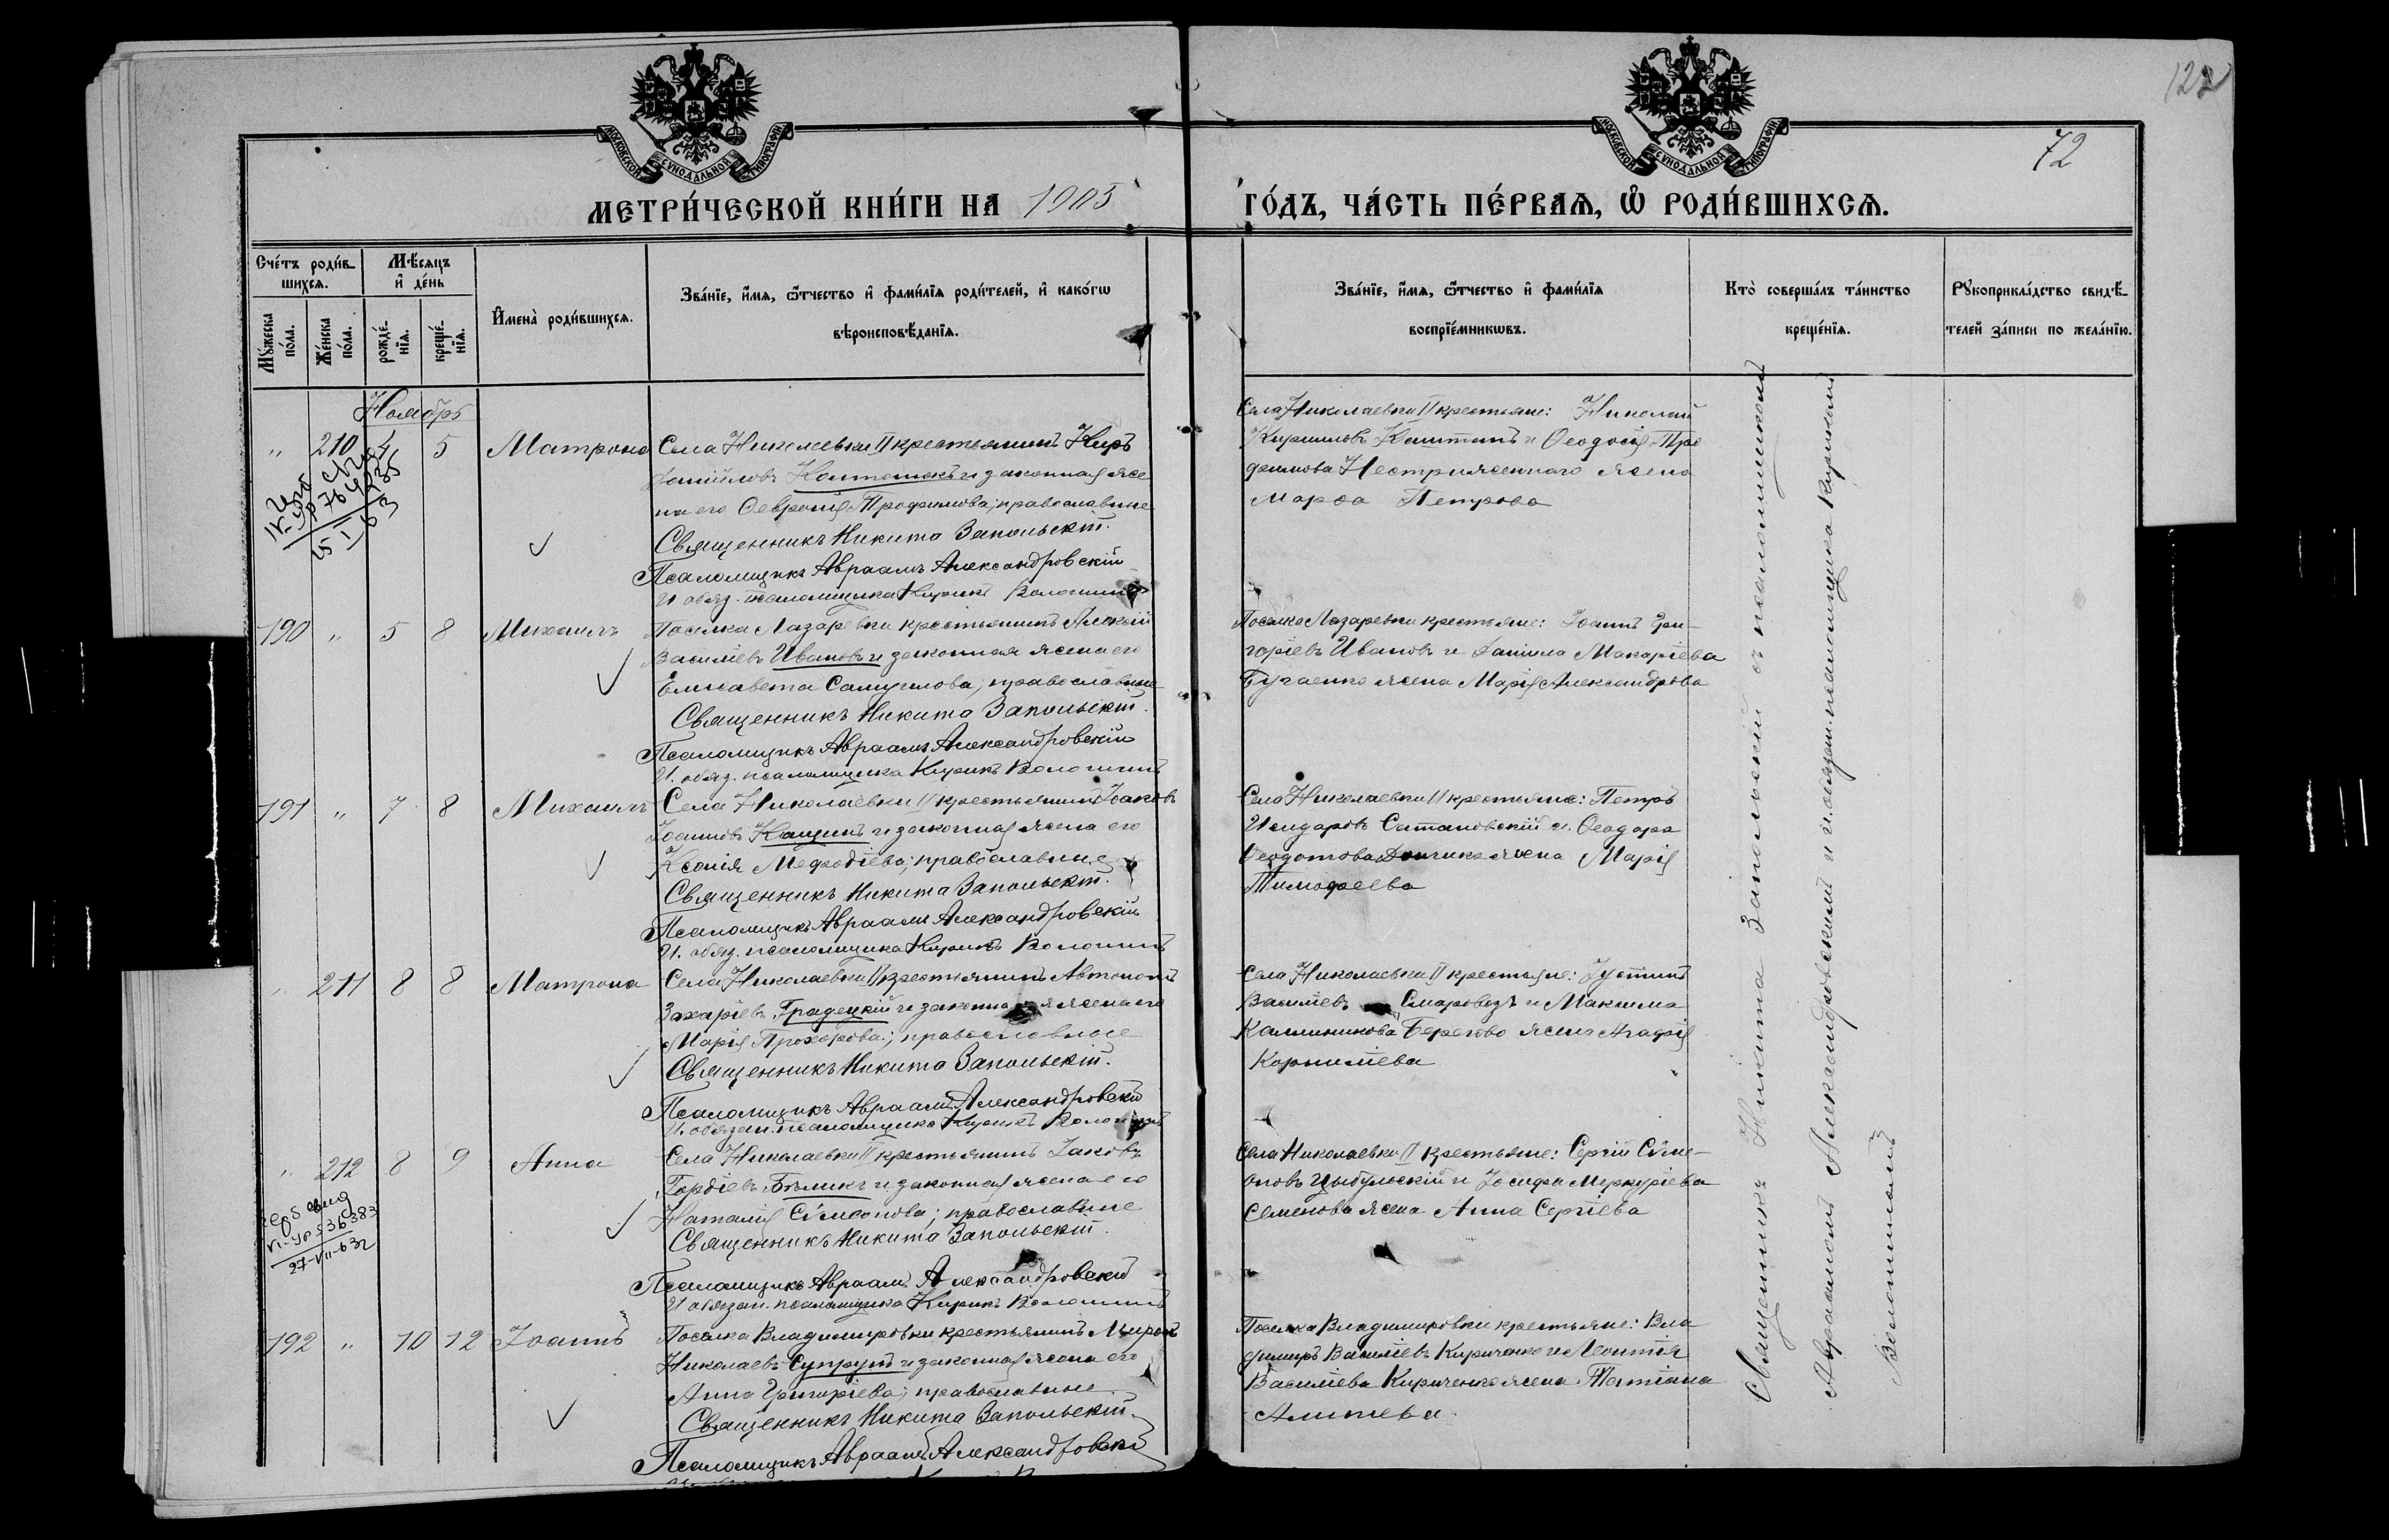 122
72
МОСКОВСКОЙ СУНОДАЛЬНОЙ ТИПОГРАФІИ
МОСКОВСКОЙ СУНОДАЛЬНОЙ ТИПОГРАФІИ
МЕТРИ́ЧЕСКОЙ КНИ́ГИ НА 1905
ГО́ДЪ, ЧА́СТЬ ПЕ́РВАѦ, Ѿ РОДИ́ВШИХСѦ.
Сче́тъ роди́в-
шихсѧ.
Мѣ́сѧцъ
и҆ де́нь
Мꙋ́жеска
по́ла.
Же́нска
по́ла.
рожде́-
нїѧ.
креще́-
нїѧ.
И҆мена̀ роди́вшихсѧ.
Зва́нїе, и҆́мѧ, ѻ҆́тчество и҆ фами́лїѧ роди́телей, и҆ како́гѡ
вѣроисповѣ́данїѧ.
Зва́нїе, и҆́мѧ, ѻ҆́тчество и҆ фами́лїѧ
воспрїе́мникѡвъ.
Кто̀ соверша́лъ та́инство
креще́нїѧ.
Рꙋкоприкла́дство свидѣ́-
телей за́писи по жела́нїю.
Ноябрь
" 210 4 5 Матрона
Села Николаевки II крестьянинъ Киръ
Даниловъ и законная же
на его Феврония Трофимова; православные
Священникъ Никита Запольскій.
Псаломщикъ Авраамъ Александровскій
И обяз. псаломщика Кирикъ Волошинъ
Села Николаевки II крестьяне: Николай
Кирилловъ и Феодосія Тро
фимова жена
Марфа Петрова
190 " 5 8 Михаилъ
Поселка Лазаревки крестьянинъ Алексій
Василіевъ Ивановъ и законная жена его
Елисавета Самуилова; православные
Священникъ Никита Запольскій.
Псаломщикъ Авраамъ Александровскій
И. обяз. псаломщика Кирикъ Волошинъ
Поселка Лазаревки крестьяне: Іоаннъ Гри-
горіевъ Ивановъ и Даніила Макаріева
Бугаенко жена Марія Александрова
191 " 7 8 Михаилъ
Села Николаевки II крестьянинъ Іаковъ
Іоанновъ Кащинъ и законная жена его
Ксенія Мефодіева; православные
Священникъ Никита Запольскій.
Псаломщикъ Авраамъ Александровскій
И. обяз. псаломщика Кирикъ Волошинъ
Села Николаевки II крестьяне: Петръ
Исидоровъ Сатановскій и Феодора
Феодотова жена Марія
Тимофеева
" 211 8 8 Матрона
Села Николаевки II крестьянинъ Автономъ
Захаріевъ Градецкій и законная жена его
Марія Прохорова; православные
Священникъ Никита Запольскій.
Псаломщикъ Авраамъ Александровскій
И. обязан. псаломщика Кирикъ Волошинъ
Села Николаевки II крестьяне: Іустинъ
Василіевъ Скаровозъ и Максима
Каллиникова Берегово жена Агафія
Корниліева
" 212 8 9 Анна
Села Николаевки II крестьянинъ Іаковъ
Гордіевъ Бѣликъ и законная жена его
Наталія Сѵмеонова; православные
Священникъ Никита Запольскій.
Псаломщикъ Авраамъ Александровскій
И обязан. псаломщика Кирикъ Волошинъ
Села Николаевки II крестьяне: Сергій Сѵме-
оновъ Цыбульскій и Іосифа Меркуріева
Семенова жена Анна Сергіева
27-VII-63г
192 " 10 12 Іоаннъ
Поселка Владимировки крестьянинъ Миронъ
Николаевъ Супрунъ и законная жена его
Анна Григоріева; православные
Священникъ Никита Запольскій.
Псаломщикъ Авраамъ Александровскій
Поселка Владимировки крестьяне: Вла
димиръ Василіевъ Кириченко и Леонтія
Василіева Кириченко жена Татіана
Алипіева.
Священникъ Никита Запольскій съ псаломщикомъ
Авраамомъ Александровскимъ и и. обязан. псаломщика Кирикомъ
Волошинымъ